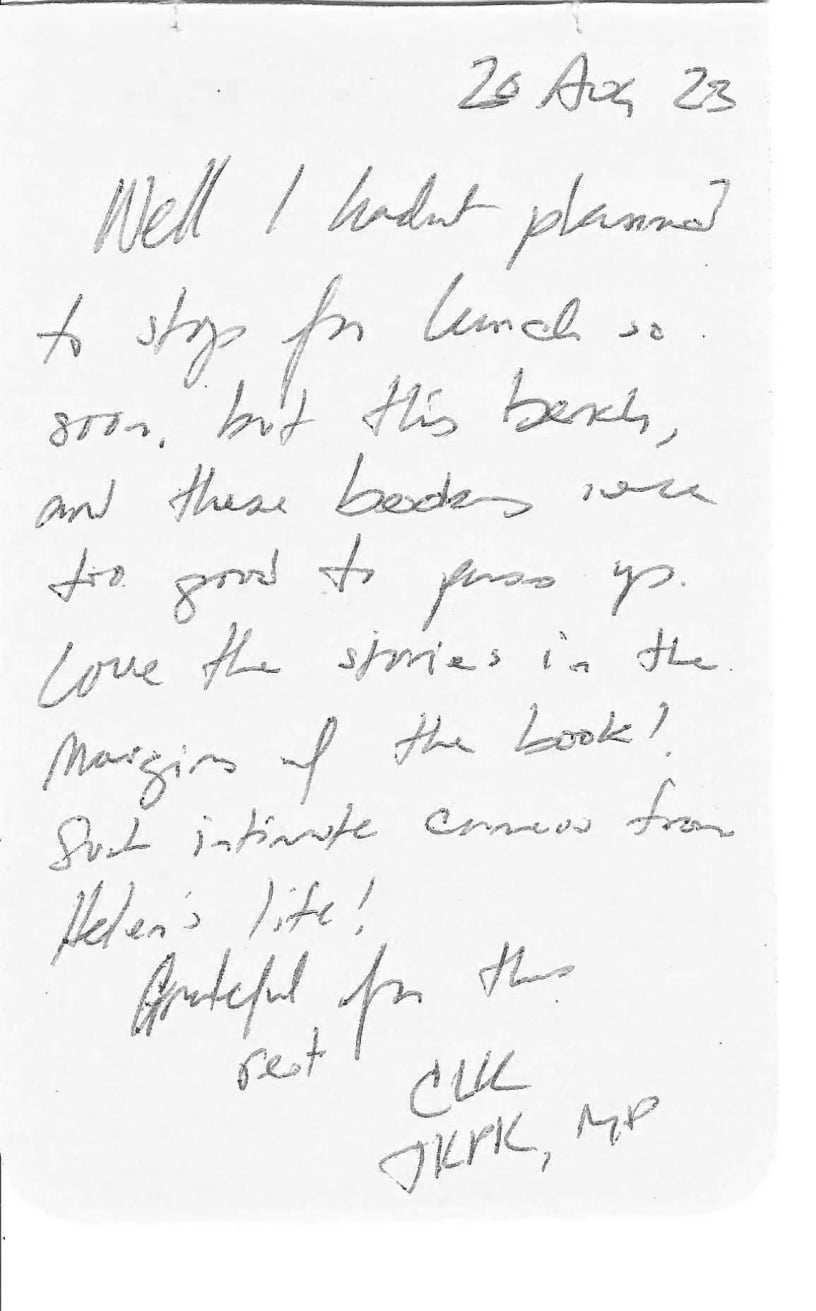 Aug 23
Well I hadnt planned
to stop for lunch so
soon, but this bench,
and these books were
too good to pass up.
Love the stories in the
Margins of the book!
Such intimate cameos from
Helen's life!
Grateful for this
rest